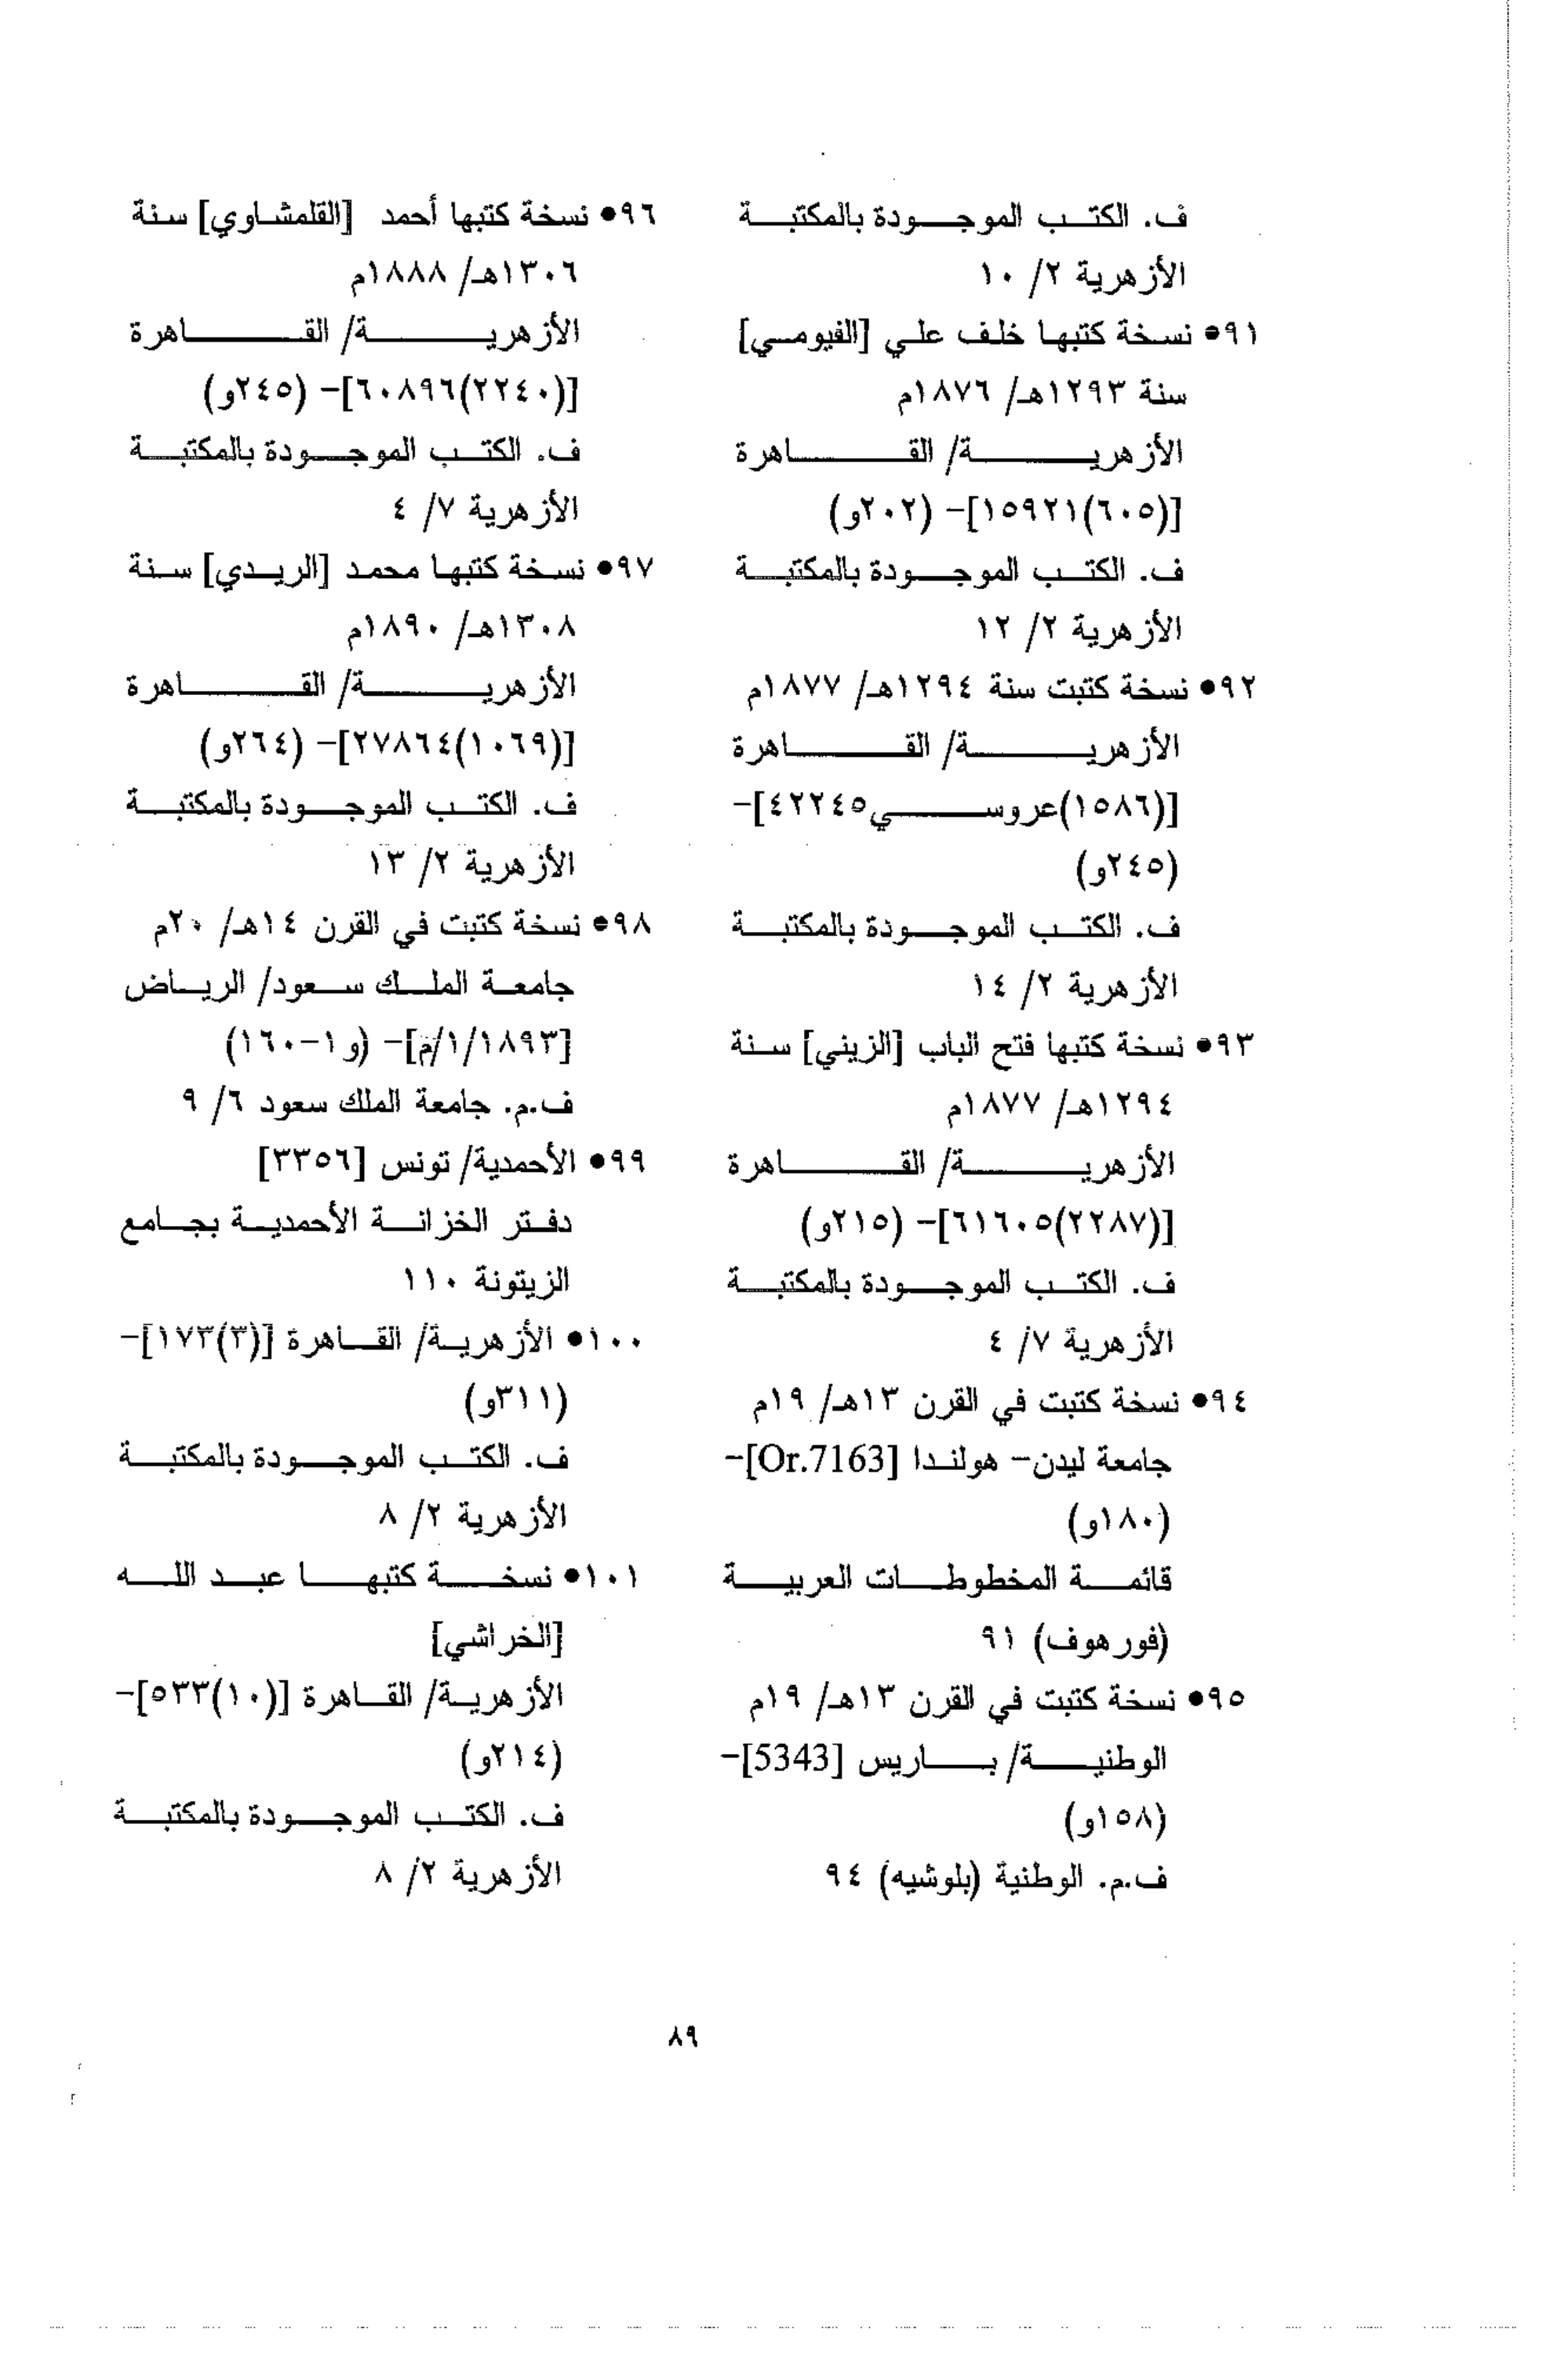 ف. الكتب الموجودة بالمكتبة
الأزهرية ٢/ ١٠
٩١• نسخة كتبها خلف علي [الفيومي]
سنة ١٢٩٣هـ/ ١٨٧٦م
الأزهرية/ القاهرة
[(٦٠٥)١٥٩٢١]- (٢٠٢و)
ف. الكتب الموجودة بالمكتبة
الأزهرية ٢/ ١٢
٩٢• نسخة كتبت سنة ١٢٩٤هـ/ ١٨٧٧م
الأزهرية/ القاهرة
[(١٥٨٦)عروسي٤٢٢٤٥]-
(٢٤٥و)
ف. الكتب الموجودة بالمكتبة
الأزهرية ٢/ ١٤
٩٣• نسخة كتبها فتح الباب [الزيني] سنة
١٢٩٤هـ/ ١٨٧٧م
الأزهرية/ القاهرة
[(٢٢٨٧)٦١٦٠٥]- (٢١٥و)
ف. الكتب الموجودة بالمكتبة
الأزهرية ٧/ ٤
٩٤• نسخة كتبت في القرن ١٣هـ/ ١٩م
جامعة ليدن- هولندا [Or.7163]-
(١٨٠و)
قائمة المخطوطات العربية
(فورهوف) ٩١
٩٥• نسخة كتبت في القرن ١٣هـ/ ١٩م
الوطنية/ باريس [5343]-
(١٥٨و)
ف.م. الوطنية (بلوشيه) ٩٤
٩٦• نسخة كتبها أحمد [القلمشاوي] سنة
١٣٠٦هـ/ ١٨٨٨م
الأزهرية/ القاهرة
[(٢٢٤٠)٦٠٨٩٦]- (٢٤٥و)
ف. الكتب الموجودة بالمكتبة
الأزهرية ٧/ ٤
٩٧• نسخة كتبها محمد [الريدي] سنة
١٣٠٨هـ/ ١٨٩٠م
الأزهرية/ القاهرة
[(١٠٦٩)٢٧٨٦٤]- (٢٦٤و)
ف. الكتب الموجودة بالمكتبة
الأزهرية ٢/ ١٣
٩٨• نسخة كتبت في القرن ١٤هـ/ ٢٠م
جامعة الملك سعود/ الرياض
[١٨٩٣/١/م]- (و١-١٦٠)
ف.م. جامعة الملك سعود ٦/ ٩
٩٩• الأحمدية/ تونس [٣٣٥٦]
دفتر الخزانة الأحمدية بجامع
الزيتونة ١١٠
١٠٠• الأزهرية/ القاهرة [(٣)١٧٣]-
(٣١١و)
ف. الكتب الموجودة بالمكتبة
الأزهرية ٢/ ٨
١٠١• نسخة كتبها عبد الله
[الخراشي]
الأزهرية/ القاهرة [(١٠)٥٣٣]-
(٢١٤و)
ف. الكتب الموجودة بالمكتبة
الأزهرية ٢/ ٨
٨٩